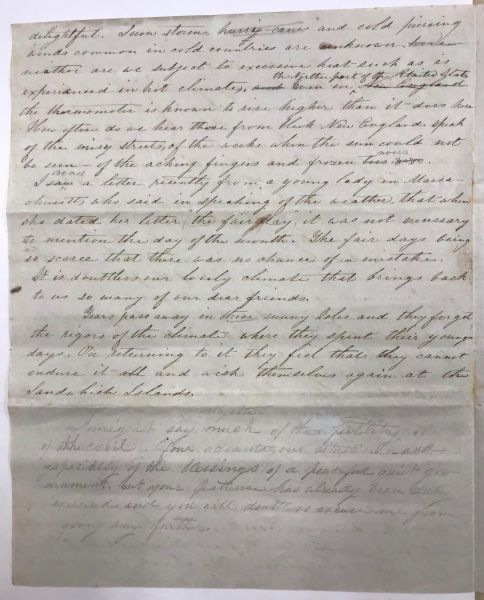 delightful. Snow storms hurricanes and cold piercing
winds common in cold countries are unknown here
neither are we subject to excessive heat such as is
experienced in hot climates, and Even in the Northern part of the United States New England
the thermometer is known to rise higher than it does here
How often do we hear those from bleak New England speak
of the misy streets, of the weeks when the sun could not
be seen - of the aching fingers and frozen toes noses
I saw read a letter recently from a young lady in Massa-
chusetts who said in speaking of the weather that when
she dated her letter "the fair day" it was not necessary
to mention the day of the month. The fair days being
so scarce that there was no chance of a mistake.
It is doubtless our lovely climate that brings back
to us so many of our dear friends.
Years pass away in these sunny Isles and they forget
the rigors of the climate where they spent their younger
days. On returning to it they feel that they cannot
endure it all and wish themselves again at the
Sandwich Islands.
I might say much of the fertility of
of the soil. of our advantageous situation and
especially of the blessings of a peaceful quiet gov-
ernment. but your patience has already been
exercised and you will doubtless excuse me from
going any further.